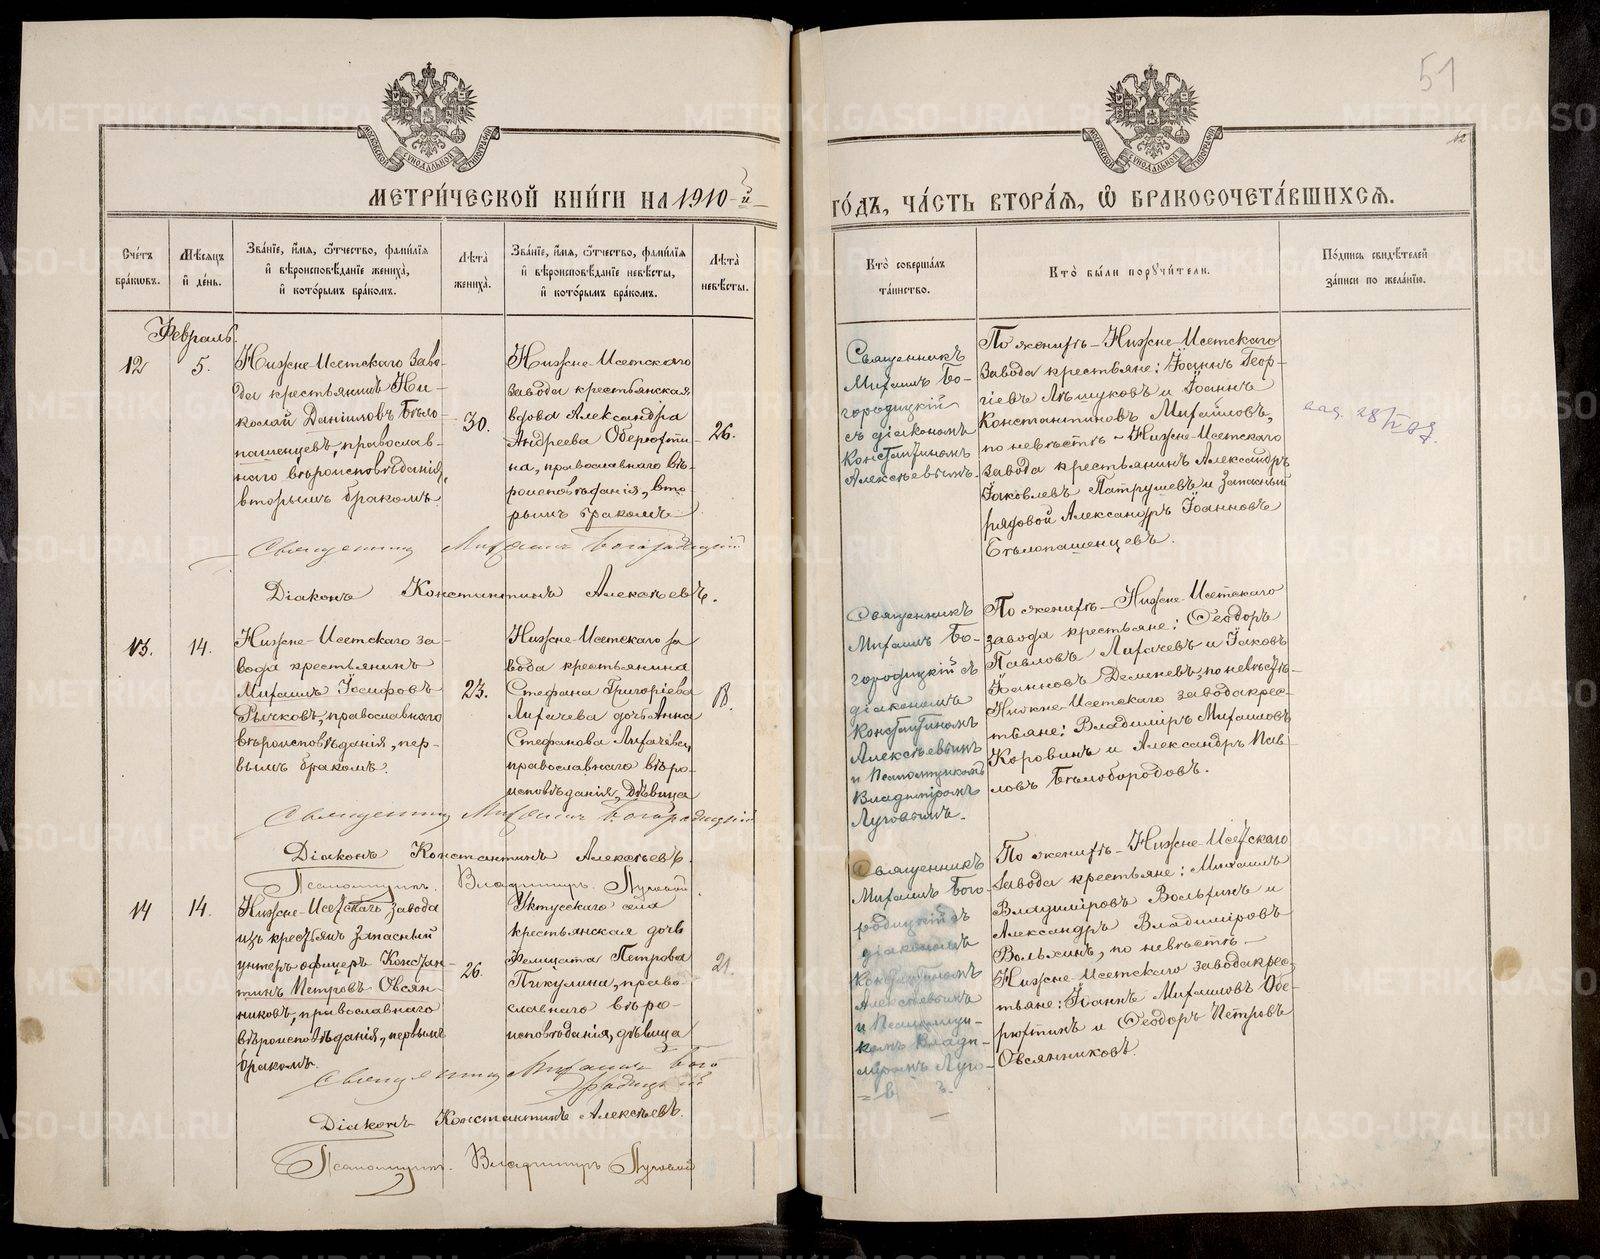 51
МЕТРИ́ЧЕСКОЙ КНИ́ГИ НА 1910-й
ГО́ДЪ, ЧА́СТЬ ВТОРА́Я, Ѡ БРАКОСОЧЕТА́ВШИХСЯ.
Сче́тъ бра́ковъ.
Мѣ́сяцъ и҆ де́нь.
Зва́нїе, и҆́мя, ѻ҆́тчество, фами́лїя
и҆ вѣроисповѣ́данїе жениха̀,
и҆ кото́рымъ бра́комъ.
Лѣ́та жениха̀.
Зва́нїе, и҆́мя, ѻ҆́тчество, фами́лїя
и҆ вѣроисповѣ́данїе невѣ́сты,
и҆ кото́рымъ бра́комъ.
Лѣ́та невѣ́сты.
Кто̀ соверша́лъ та́инство.
Кто̀ бы́ли поручи́тели.
По́дпись свидѣ́телей
за́писи по жела́нїю.
Февраль.
12
5.
Нижне-Исетскаго заво-
да крестьянинъ Ни-
колай Даніиловъ Бѣло-
пашенцевъ, православ-
наго вѣроисповѣданія,
вторымъ бракомъ.
30.
Нижне-Исетскаго
завода крестьянская
вдова Александра
Андреева Оберюхти-
на, православнаго вѣ-
роисповѣданія, вто-
рымъ бракомъ.
26.
Священникъ
Михаилъ Бо-
городицкій
съ діакономъ
Константиномъ
Алексѣевымъ.
По женихѣ - Нижне-Исетскаго
завода крестьяне: Іоаннъ Геор-
гіевъ Лѣшуковъ и Іоаннъ
Константиновъ Михайловъ,
по невѣстѣ - Нижне-Исетскаго
завода крестьянинъ Александръ
Іаковлевъ Патрушевъ и запасный
рядовой Александръ Іоанновъ
Бѣлопашенцевъ.
Священникъ Михаилъ Богородицкій
Діаконъ Константинъ Алексѣевъ.
13.
14.
Нижне-Исетскаго за-
вода крестьянинъ
Михаилъ Іосифовъ
Рычковъ, православнаго
вѣроисповѣданія, пер-
вымъ бракомъ.
23.
Нижне-Исетскаго за
вода крестьянина
Стефана Григоріева
Лихачева дочь Анна
Стефанова Лихачева,
православнаго вѣро-
исповѣданія, дѣвица
18.
Священникъ
Михаилъ Бо-
городицкій съ
діакономъ
Константиномъ
Алексѣевымъ
и Псаломщикомъ
Владиміромъ
Луговымъ.
По женихѣ - Нижне-Исетскаго
завода крестьяне: Ѳеодоръ
Павловъ Лихачевъ и Іаковъ
Іоанновъ Деменевъ, по невѣстѣ-
Нижне-Исетскаго завода крес-
тьяне: Владиміръ Михаиловъ
Коровинъ и Александръ Пав-
ловъ Бѣлобородовъ.
Священникъ Михаилъ Богородицкій
Діаконъ Константинъ Алексѣевъ.
Псаломщикъ. Владимиръ. Луговый
14
14.
Нижне-Исетскаго завода
изъ крестьянъ запасный
унтеръ офицеръ Констан-
тинъ Петровъ Овсян-
никовъ, православнаго
вѣроисповѣданія, первымъ
бракомъ.
26.
Уктусскаго села
крестьянская дочь
Фелицата Петрова
Пикулина, право-
славнаго вѣро-
исповѣданія, дѣвица
21.
Священникъ
Михаилъ Бого-
родицкій съ
діакономъ
Константиномъ
Алексѣевымъ
и Псаломщи-
комъ Влади-
міромъ Луго-
По женихѣ - Нижне-Исетскаго
завода крестьяне: Михаилъ
Владиміровъ Вольхинъ и
Александръ Владиміровъ
Вольхинъ, по невѣстѣ -
Нижне-Исетскаго завода крес-
тьяне: Іоаннъ Михаиловъ Обе-
рюхтинъ и Ѳеодоръ Петровъ
Овсянниковъ.
Священникъ Михаилъ Бого
родицкій
Діаконъ Константинъ Алексѣевъ.
Псаломщикъ. Владимиръ Луговый
METRIKI.GASO-URAL.RU